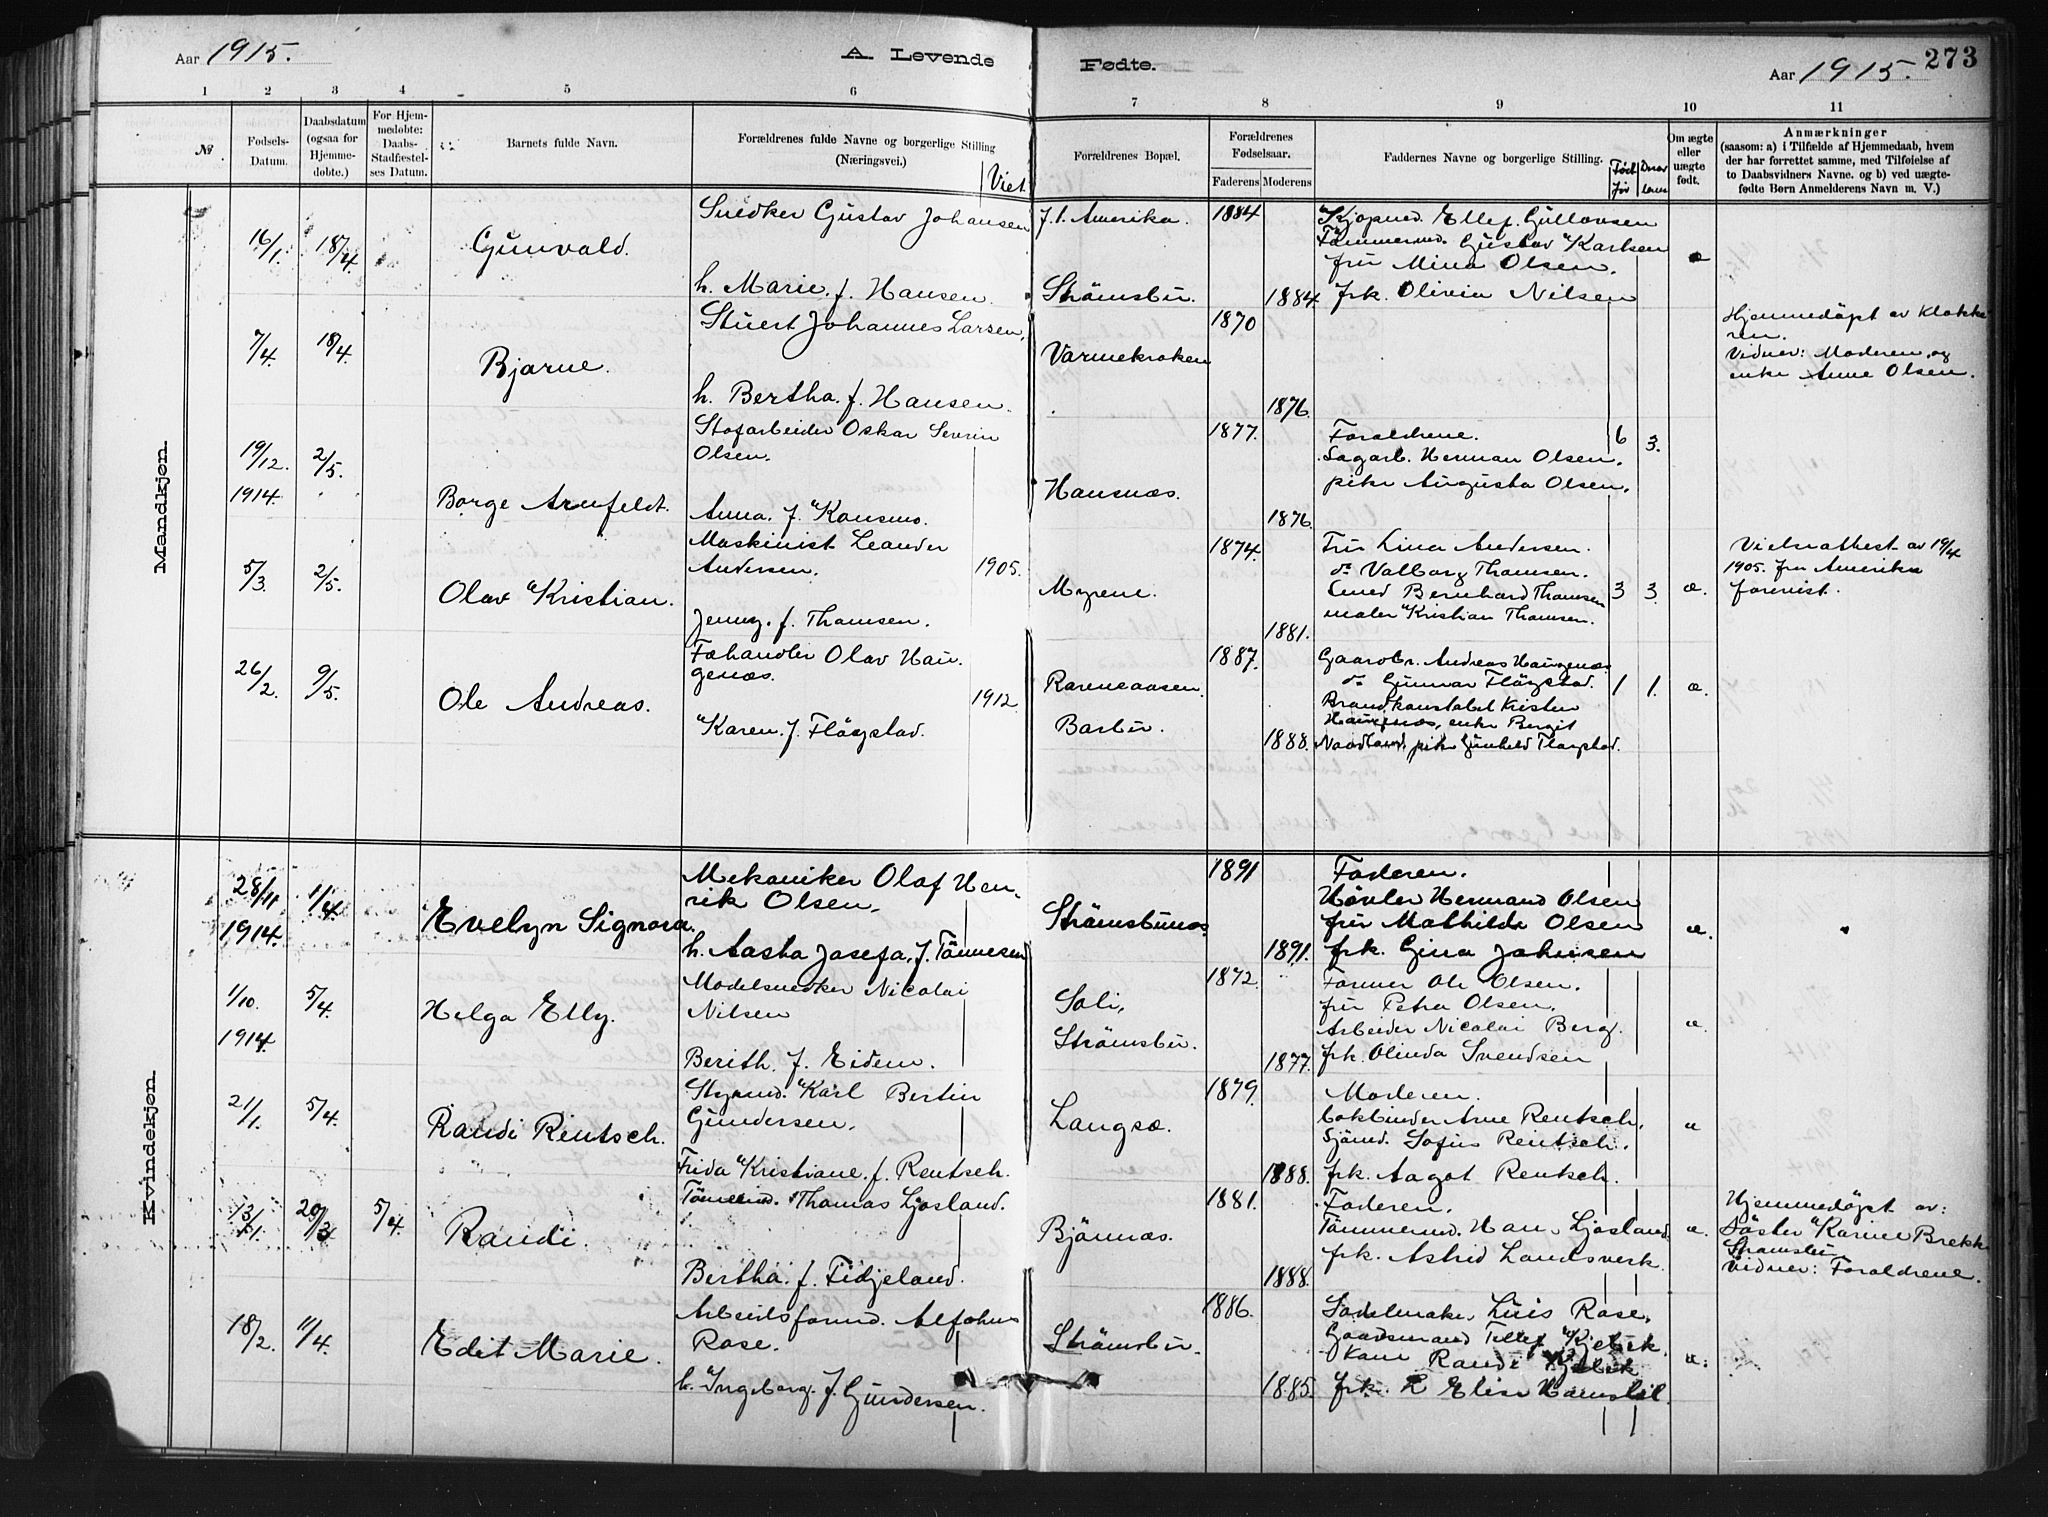 Aar 1915.
A. Levende Fødte.
Aar 1915. 273
1 2 3 4 5 6 7 8 9 10 11
No
Fødsels-Datum.
Daabsdatum (ogsaa for Hjemme-døbte.)
For Hjem-medøbte: Daabs-Stadfæstel-ses Datum.
Barnets fulde Navn.
Forældrenes fulde Navne og borgerlige Stilling (Næringsvei.)
Viet
Forældrenes Bopæl.
Forældrenes Fødselsaar.
Faderens Moderens
Faddernes Navne og borgerlige Stilling.
Født før
Om ægte eller uægte født.
Anmærkninger
(saasom: a) i Tilfælde af Hjemmedaab, hvem
der har forrettet samme, med Tilføielse af
to Daabsvidners Navne. og b) ved uægte-
fødte Børn Anmelderens Navn m. V.)
Mandkjøn.
16/1. 18/4. Gunvald.
Snedker Gustav Johansen
h. Marie. f. Hansen.
f. t. Amerika.
Strømsbu.
1884
1884
Kjøpmd. Ellef. Gullovsen
Tømmermd. Gustav Karlsen
fru Mina Olsen.
frk. Olivia Nilsen
æ
7/4. 18/4. Bjarne.
Stuert Johannes Larsen,
h. Bertha. f. Hansen.
Varmekroken
1870
1876.
Hjemmedöpt av Klokke
ren.
Vidner: Moderen, og
enke Anne Olsen.
19/12. 1914. 2/5.
Borge Arnfeldt.
Stofarbeider Oskar Severin
Olsen.
Anna. f. Konsmo.
Hansnæs.
1877.
1876.
Foraldrene.
Sagarb. Herman Olsen.
pike Augusta Olsen.
6 3.
5/3. 2/5.
Olav Kristian.
Maskinist Leander
Andersen.
Jenny. f. Thomsen.
1905.
Myrene.
1874.
1881.
Fru Lina Andersen.
do Valborg Thomsen.
Smed Bernhard Thomsen
maler Kristian Thomsen.
3 3. æ.
Vielsesattest av 19/4
1905. fra Amerika
forevist.
26/2. 9/5.
Ole Andreas.
Fæhandler Olav Hau-
genæs.
Karen. f. Flögstad.
1912.
Barbu.
1887.
1888.
Gaardbr. Andreas Haugenæs
do Gunnar Flögstad.
Brandkonstabel Kristen
Haugenæs, enke Bergit
1 1. æ.
Kvindekjøn.
28/11 1914. 1/4.
Evelyn Signora.
Mekaniker Olaf Hen-
rik Olsen.
h. Aasta Josefa. f. Tönnesen
Strømsbunæs
1891
1891.
Faderen.
Hövler Hermand Olsen
fru Mathilde Olsen
frk. Gina Johnsen
æ.
1/10. 1914. 5/4.
Helga Elly.
Modelsnedker Nicolai
Nilsen
Berith. f. Eidem.
Soli,
Strömsbu.
1872.
1877.
Former Ole Olsen.
fru Petra Olsen.
Arbeider Nicolai Berg.
frk. Olinda Svendsen
æ
21/1. 5/4.
Randi Rentsch.
Styrmd. Karl Bertin
Gundersen.
Frida Kristiane. f. Rentsch.
Langsæ.
1879.
1888.
Moderen.
bokbinder Arne Rentsch.
Sjömd. Sofus Rentsch.
frk. Aagot Rentsch.
æ
13/1. 20/3 5/4.
Randi.
Tömmermd. Thomas Ljosland.
Bertha. f. Fidjeland.
Björnnæs.
1881.
1888.
Faderen.
Tömmermd. Han. Ljosland
frk. Astrid Landsverk.
æ.
Hjemmedöpt av:
Söster Karine Brekk
Strømsbu
Vidner: Foraldrene.
18/2. 11/4.
Edit Marie.
Arbeidsformd. Alfohns
Rose.
h. Ingeborg. f. Gundersen.
Strømsbu.
1886.
1885.
Sadelmaker Luis Rose.
Gaardsmand Tellef Kjebek.
Kone Randi Kjebek
frk. R Elise Harnstil.
æ.